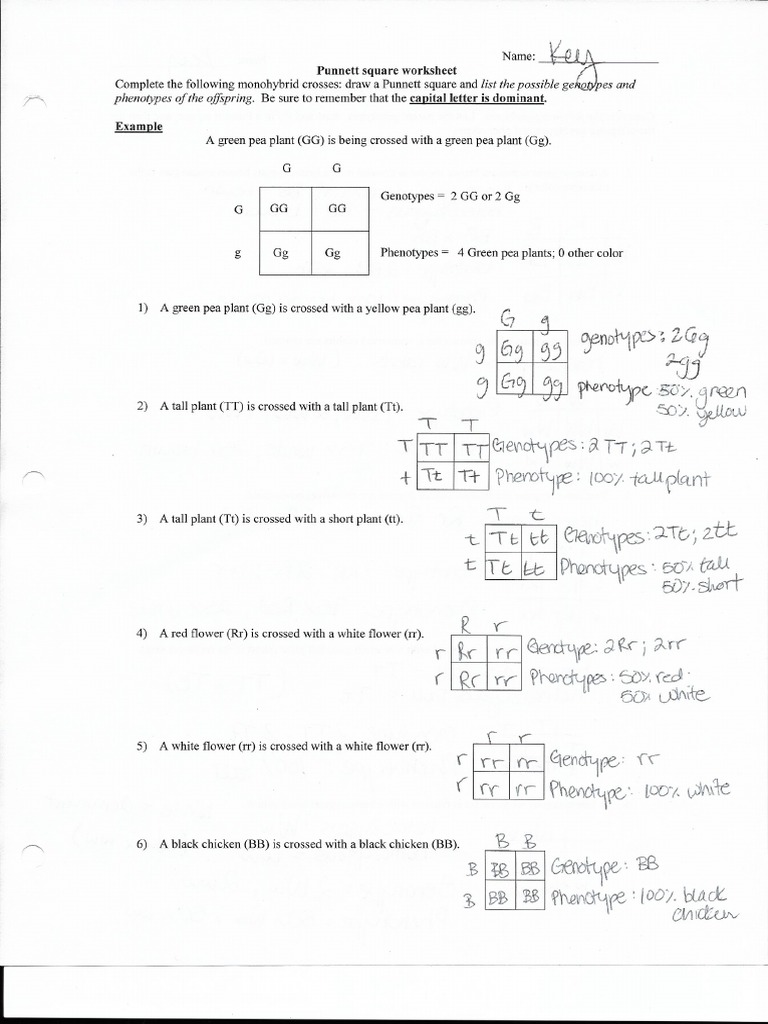 Name: Key
Punnett square worksheet
Complete the following monohybrid crosses: draw a Punnett square and list the possible genotypes and
phenotypes of the offspring. Be sure to remember that the capital letter is dominant.
Example
A green pea plant (GG) is being crossed with a green pea plant (Gg).
G G
G GG GG Genotypes = 2 GG or 2 Gg
g Gg Gg Phenotypes = 4 Green pea plants; 0 other color
1) A green pea plant (Gg) is crossed with a yellow pea plant (gg).
G g
g Gg gg genotypes: 2Gg
2gg
g Gg gg phenotype 50% green
50% yellow
2) A tall plant (TT) is crossed with a tall plant (Tt).
T T
T TT TT Genotypes: 2 TT; 2 Tt
t Tt Tt Phenotype: 100% tall plant
3) A tall plant (Tt) is crossed with a short plant (tt).
T t
t Tt tt Genotypes: 2Tt; 2tt
t Tt tt Phenotypes: 50% tall
50% short
4) A red flower (Rr) is crossed with a white flower (rr).
R r
r Rr rr Genotype: 2Rr; 2rr
r Rr rr Phenotypes: 50% red
50% white
5) A white flower (rr) is crossed with a white flower (rr).
r r
r rr rr Genotype: rr
r rr rr Phenotype: 100% white
6) A black chicken (BB) is crossed with a black chicken (BB).
B B
B BB BB Genotype: BB
B BB BB Phenotype: 100% black
chicken